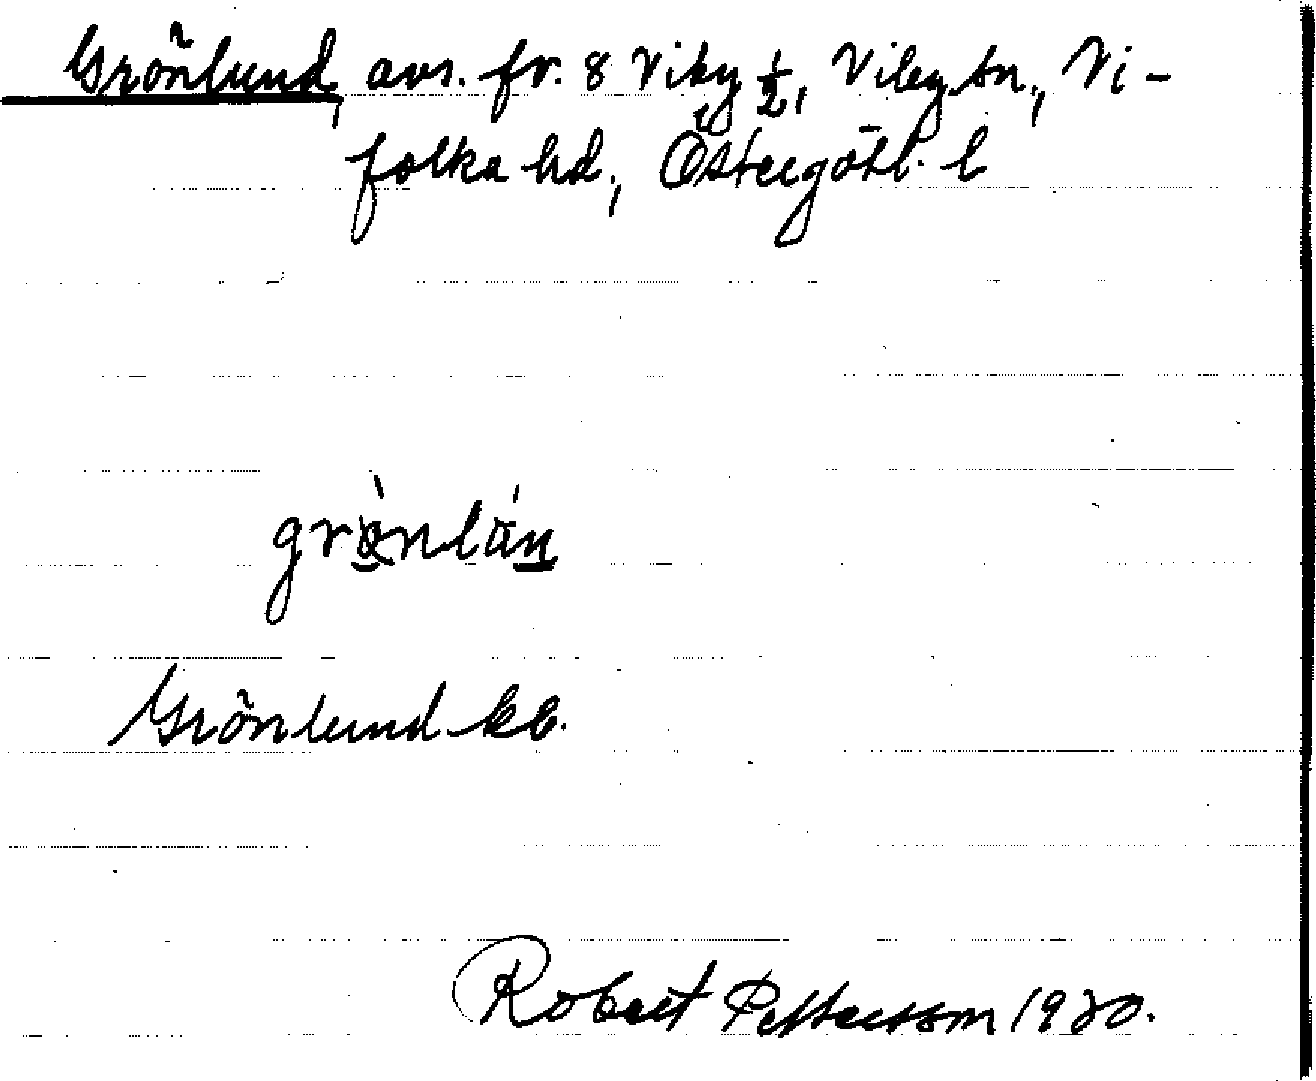 Grönlund, avs. fr. 8 Viby ½, Viby sn., Vi-
folka hd., Östergötl. l
grònlán
Grönlund kb.
Robert Pettersson 1920.